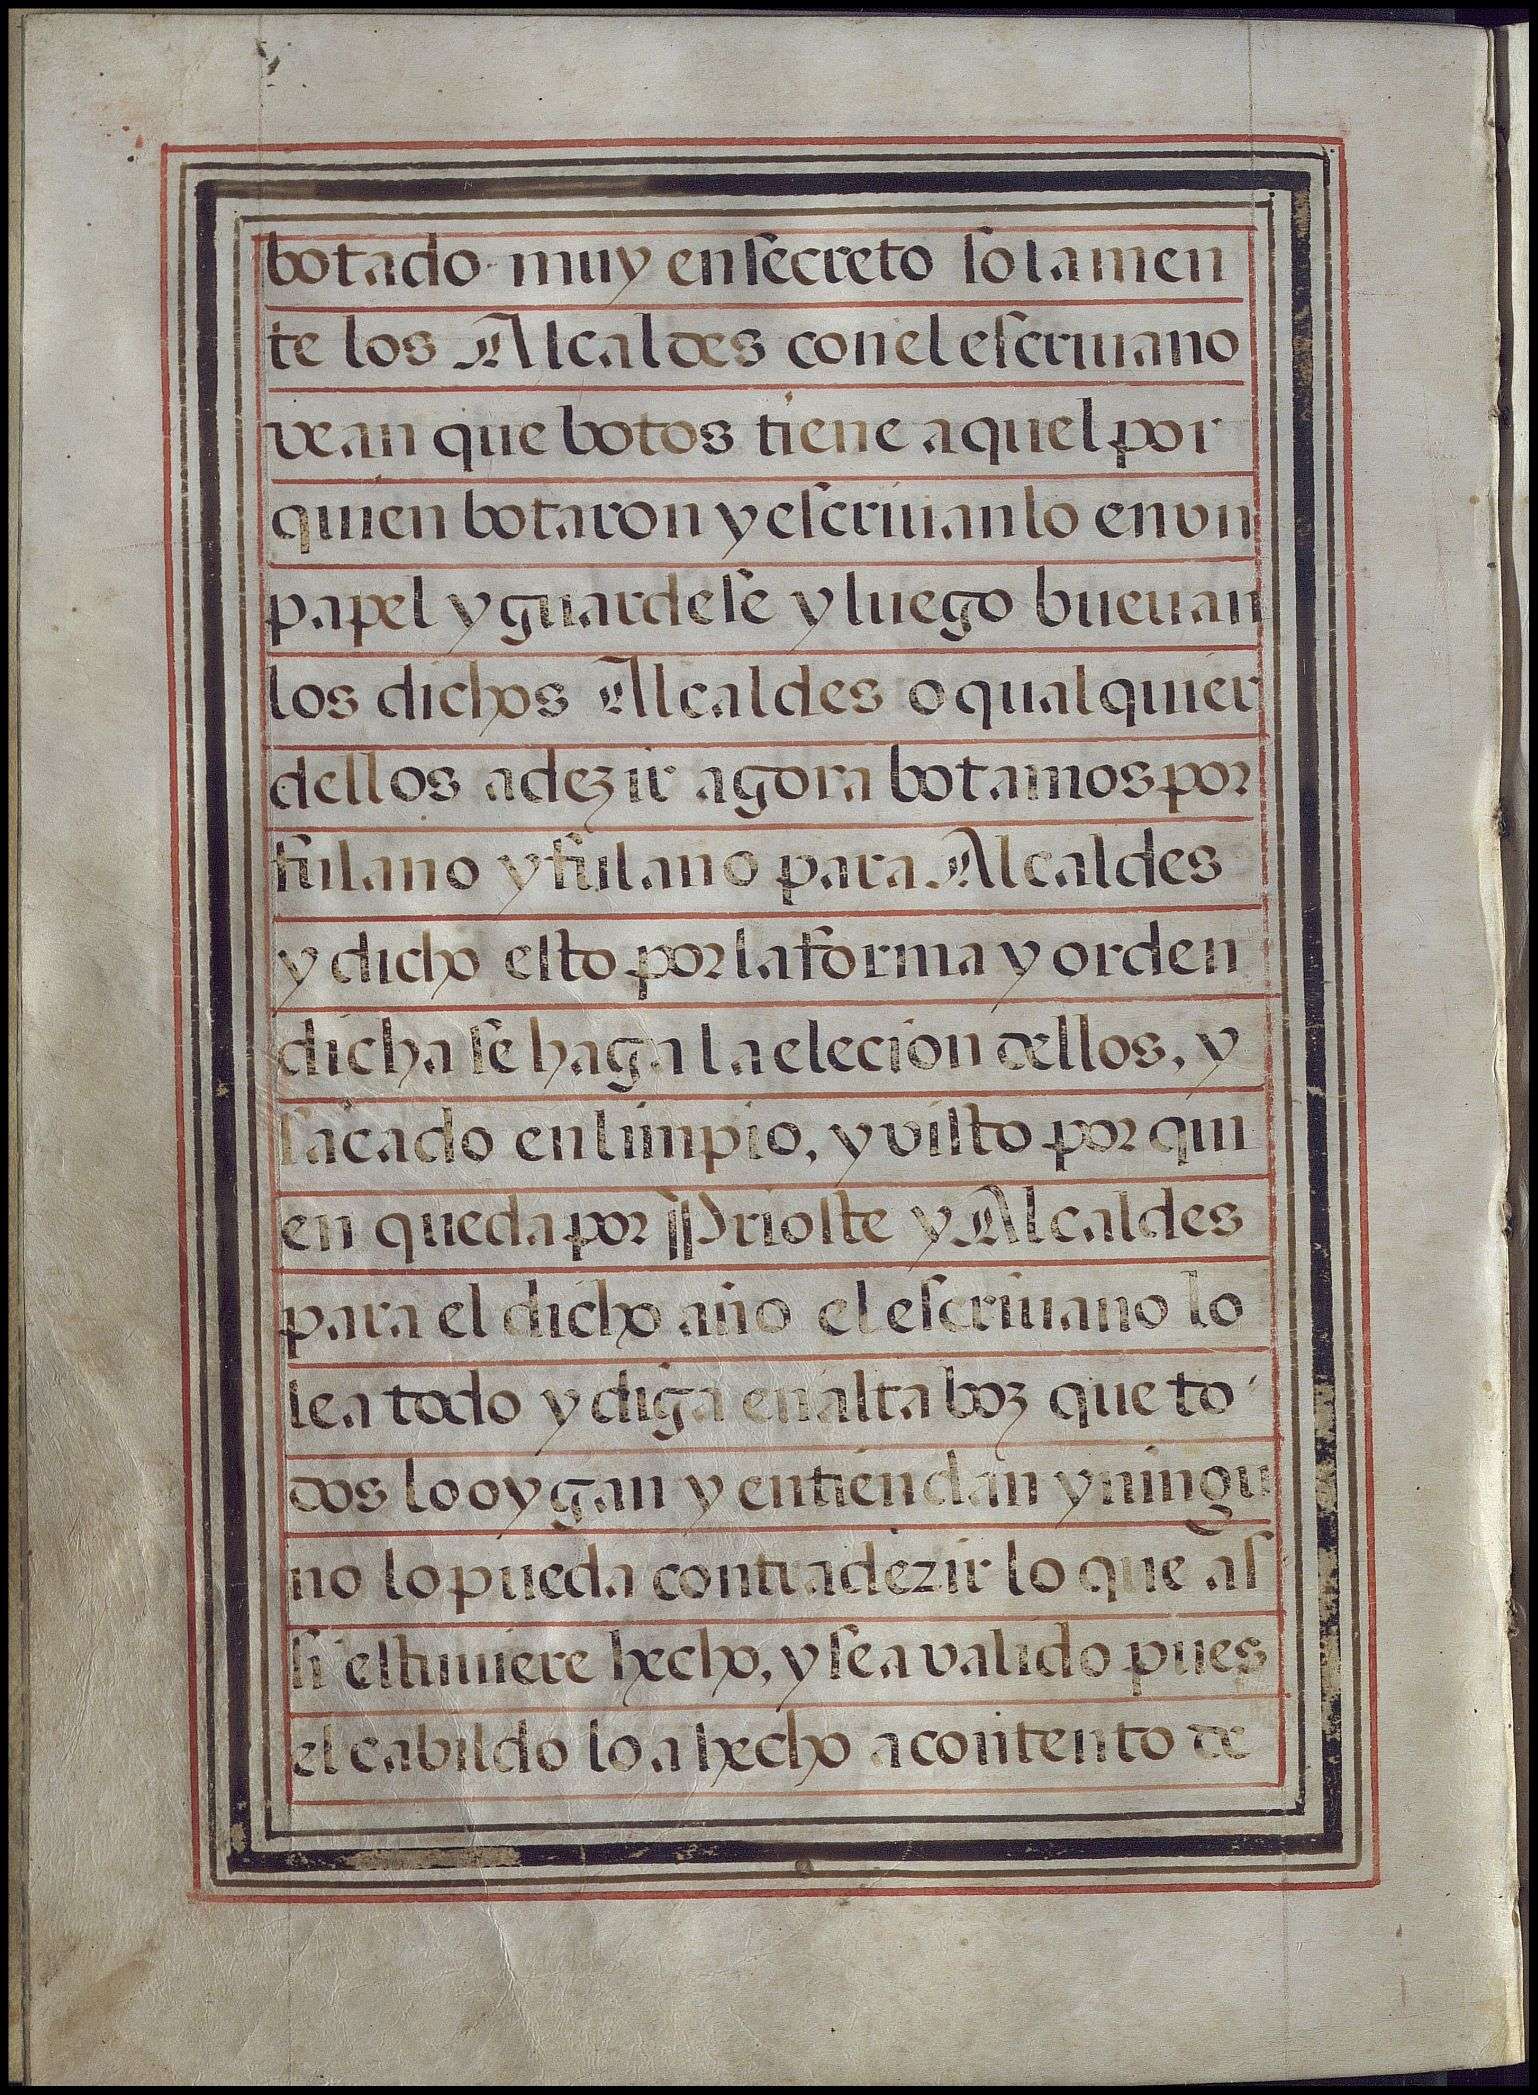 botado muy en ſecreto ſolamen
te los Alcaldes con el eſcriuano
vean que botos tiene aquel por
quien botaron y eſcriuanlo en vn
papel y guardeſe y luego bueuan
los dichos Alcaldes o qualquier
dellos a dezir agora botamos por
fulano y fulano para Alcaldes
y dicho eſto por la forma y orden
dicha ſe haga la elecion dellos, y
ſacado en limpio, y viſto por qui
en queda por Prioſte y Alcaldes
para el dicho año el eſcriuano lo
lea todo y diga en alta boz que to
dos lo oygan y entiendan y ningu
no lo pueda contradezir lo que aſ
ſi eſtuuiere hecho, y ſea valido pues
el cabildo lo a hecho a contento de